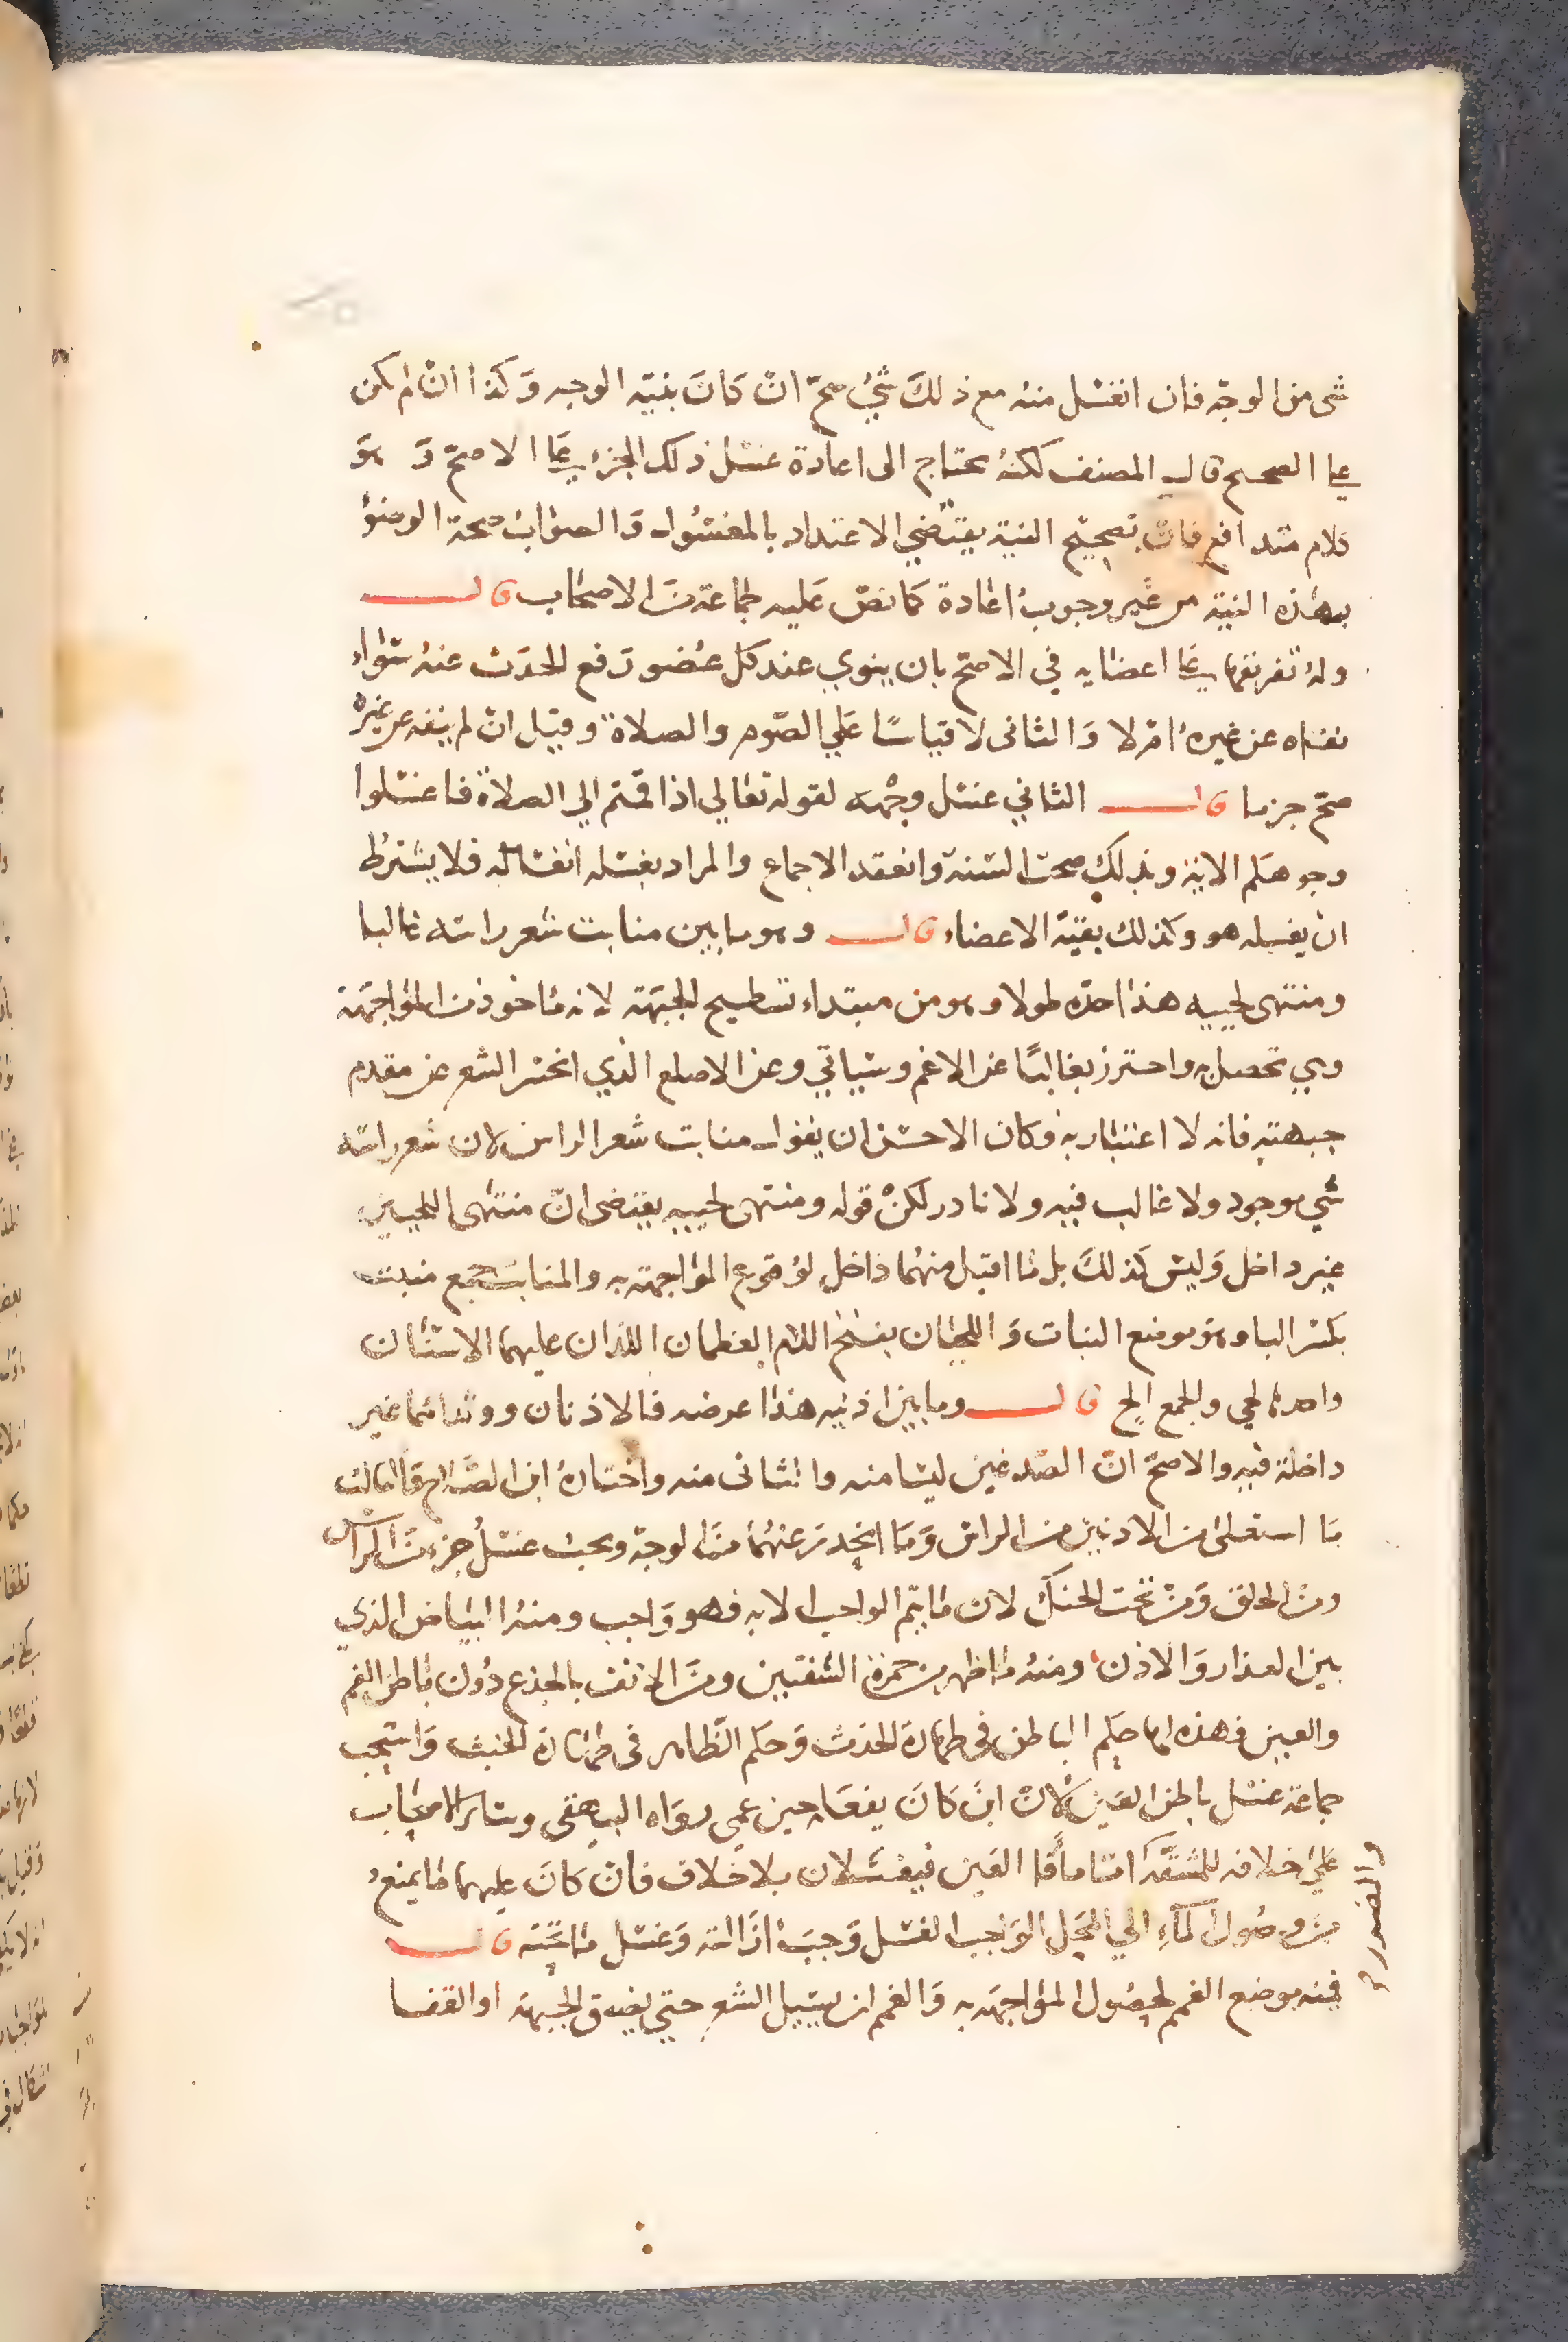 شى من الوجه فان انغسل منه مع ذلك شيء صح ان كان بنية الوجه وكذا ان لم يكن
على الصحيح قال المصنف لكنه يحتاج الى اعادة غسل ذلك الجزء على الاصح وهو
كلام متدافع فان تصحيح النية يقتضي الاعتداد بالمغسول والصواب صحة الوضوء
بهذه النية من غير وجوب اعادة كما نص عليه جماعة من الاصحاب قال
وله تفريقها على اعضايه في الاصح بان ينوي عند كل عضو رفع الحدث عنه سواء
نفاه عن غيره ام لا والثانى لا قياسا علي الصوم والصلاة وقيل ان لم ينفه عن غيره
صح جزما قال الثاني غسل وجهه لقوله تعالي اذا قمتم الي الصلاة فاغسلوا
وجوهكم الاية وبذلك صحت السنة وانعقد الاجماع والمراد بغسله انغساله فلا يشترط
ان يغسله هو وكذلك بقية الاعضاء قال وهو ما بين منابت شعر راسه غالبا
ومنتهى لحييه هذا حده طولا وهو من مبتداء تسطيح الجبهة لانه ماخوذ من المواجهة
وهي تحصل به واحترز بغالبا عن الاغم وسياتي وعن الاصلع الذي انحسر الشعر عن مقدم
جبهته فانه لا اعتبار به وكان الاحسن ان يقول منابت شعر الراس لان شعر راسه
شي موجود ولا غالب فيه ولا نادر لكن قوله ومنتهى لحييه يقتضى ان منتهى اللحيين
غير داخل وليس كذلك بل ما اقبل منهما داخل لوقوع المواجهة به والمنابت جمع منبت
بكسر الباء وهو موضع النبات واللحيان بفتح اللام العظمان اللذان عليهما الاسنان
واحدها لحي والجمع الح قال وما بين اذنيه هذا عرضه فالاذنان ووتداهما غير
داخلة فيه والاصح ان الصدغين ليسا منه والثانى منه واختاره ابن الصلاح قال مالت
ما استعلى من الاذنين من الراس وما انحدر عنهما من الوجه ويجب غسل جزء من الراس
ومن الحلق ومن تحت الحنك لان ما يتم الواجب الا به فهو واجب ومنه البياض الذي
بين العذار والاذن ومنه ما ظهر من حمرة الشفتين ومن الانف بالجذع دون باطن الفم
والعين فهذه لها حكم الباطن في طهارة الحدث وحكم الظاهر في طهارة الخبث واستحب
جماعة غسل باطن العين لان ابن كان يفعله حين عمي رواه البيهقى وسائر الاصحاب
علي خلافه للمشقة اما ماقا العين فيغسلان بلا خلاف فان كان عليهما ما يمنع
من وصول الماء الي المحل الواجب الغسل وجب ازالته وغسل ما تحته قال
فمنه موضع الغمم لحصول المواجهة به والغمم ان يسيل الشعر حتي يضيق الجبهة او القفا
والضرر